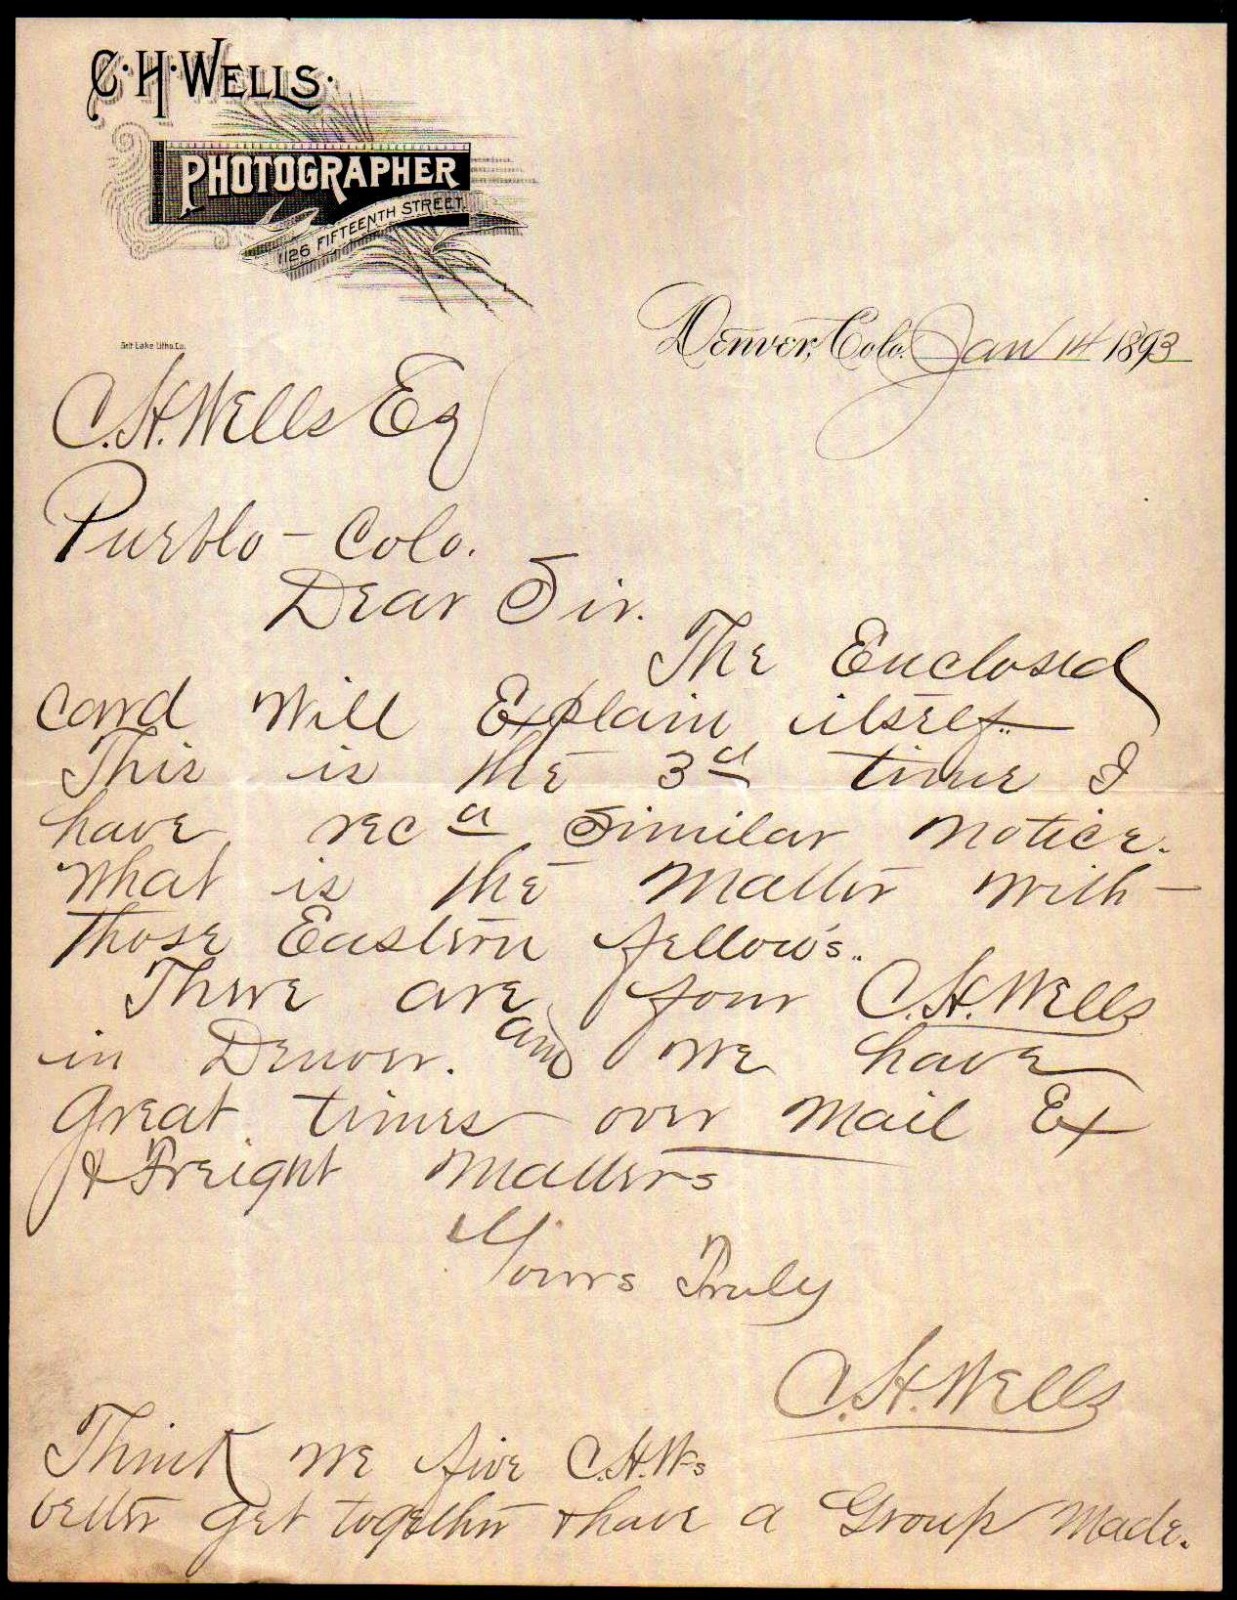 C. H. WELLS.
PHOTOGRAPHER
1126 FIFTEENTH STREET.
Salt Lake Litho. Co.
Denver, Colo. Jan 14 1893
C. H. Wells Eq
Pueblo - Colo.
Dear Sir.
The Enclosed
card Will Explain itself..
This is the 3d time I
have recd Similar Notice.
What is the Matter with -
those Eastern fellow's..
There are four C. H. Wells
in Denver. and We have
great times over Mail Ex
& Freight Matters
Yours Truly
C. H. Wells
Think We five C. H. Ws
better get together & have a Group Made.